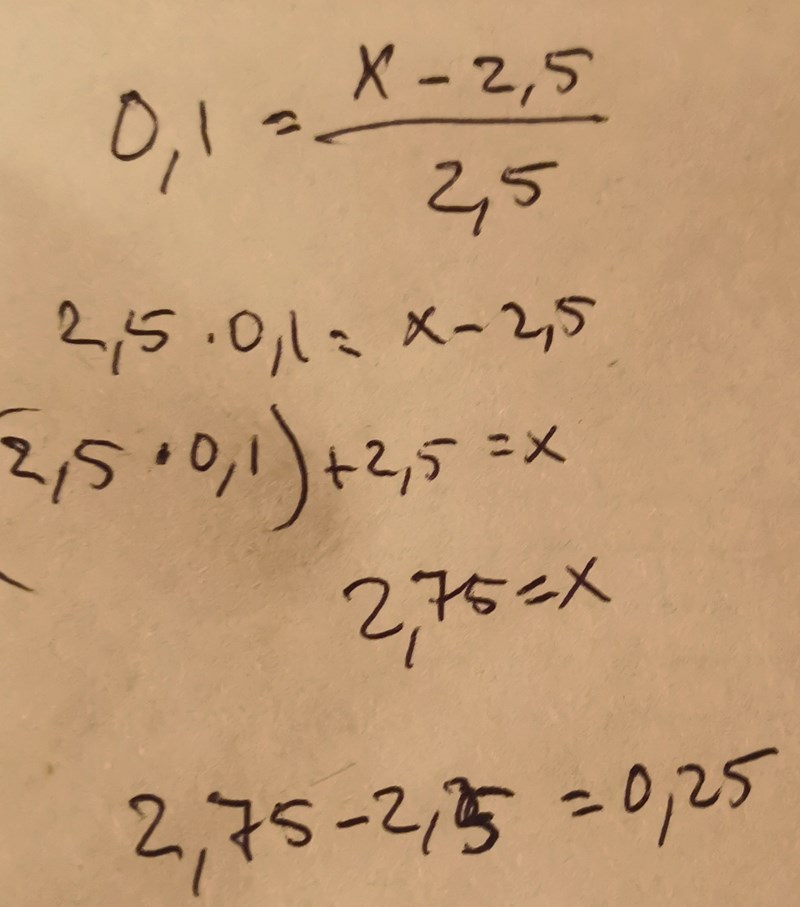 0,1 = x - 2,5 / 2,5
2,5 · 0,1 = x - 2,5
(2,5 · 0,1) + 2,5 = x
2,75 = x
2,75 - 2,5 = 0,25